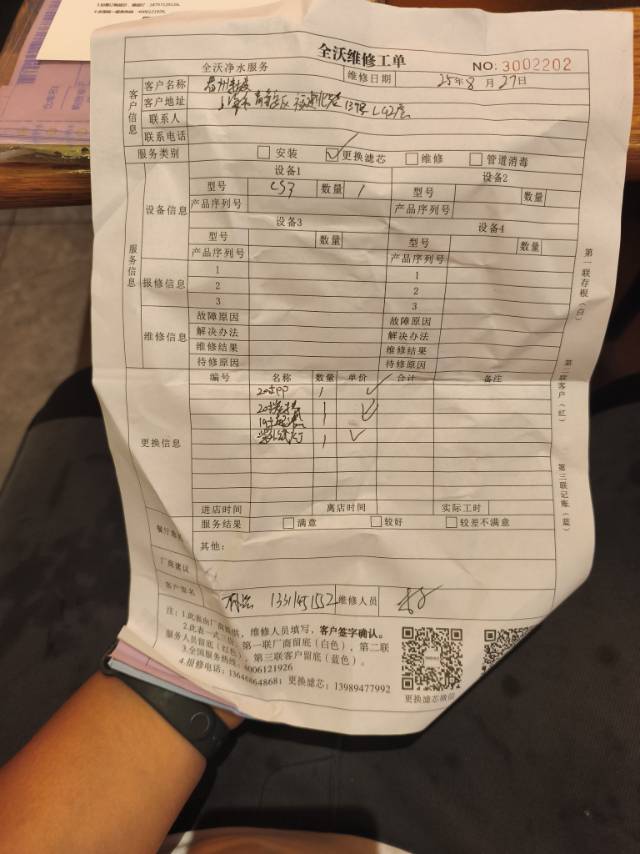 全沃维修工单
全沃净水服务 维修日期 25年8月27日 NO: 3002202
客户信息
客户名称
客户地址
联系人
联系电话
服务类别 安装 更换滤芯 维修 管道消毒
服务信息
设备信息
设备1 设备2
型号 CS7 数量 1 型号 数量
产品序列号 产品序列号
设备3 设备4
型号 数量 型号 数量
产品序列号 产品序列号
报修信息
1 1
2 2
3 3
维修信息
故障原因 故障原因
解决办法 解决办法
维修结果 维修结果
待修原因 待修原因
更换信息
编号 名称 数量 单价 合计 备注
20寸PP 1
1
1
1
进店时间 离店时间 实际工时
服务结果 满意 较好 较差不满意
其他:
厂商建议
客户签名 维修人员
注: 1.此表由厂商提供, 维修人员填写, 客户签字确认。
2.此表一式三份, 第一联厂商留底(白色), 第二联
服务人员留底(红色), 第三联客户留底(蓝色)。
3.全国服务热线: 4006121926
4.报修电话: 13646664868; 更换滤芯: 13989477992
更换滤芯微信
第一联存根(白)
第二联客户(红)
第三联记账(蓝)